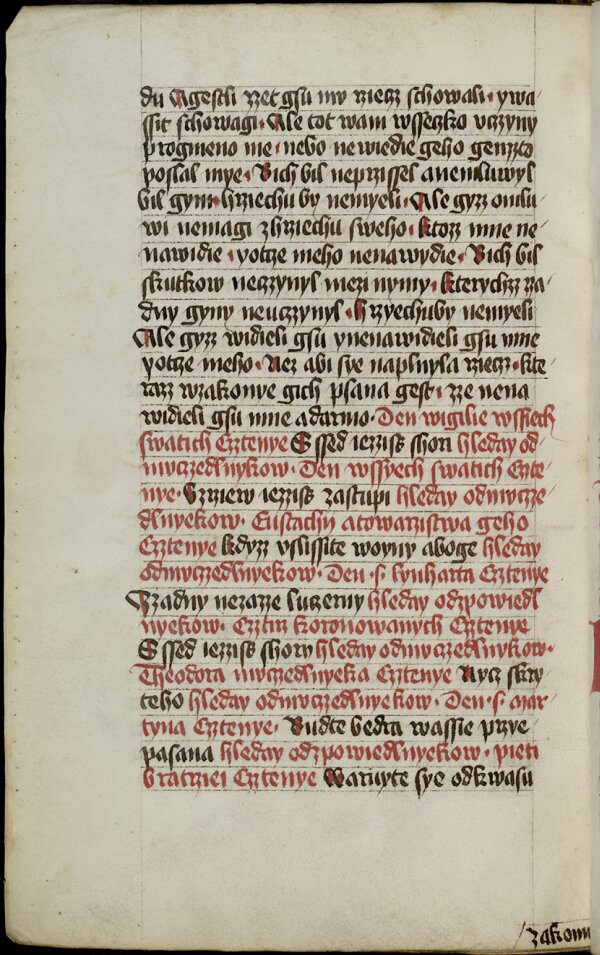 du Agestli zzet gsu mu rziecz schowali · ywa
ssit schowagi · Ale tot wam wsseczko vczyny
progmeno me · nebo newiedie geho genzto
poslal mye · Bich bil neprzissel anemluwyl
bil gym · hrziechu by nemyeli · Ale gyzz omlu
wi nemagi zhrziechu sweho · ktozz mne ne
nawidie · yotcze meho nenawydie · Bich bil
skutkow neczynyl mezi nymy · kterychzz za
dny gyny neuczynyl · hrzyechuby nemyeli
Ale gyzz widieli gsu ynenawidieli gsu mne
yotcze meho · Nez abi sye naplnyla rziecz · kte
razz wzakonye gich psana gest · zze nena
widieli gsu mne adarmo · Den wigilie wssiech
swatich Cztenye Ssed iezziss shori hleday od
muczedlnykow · Den wssyech swatich Czte
nye · Uzrziew iezziss zastupi hleday odmucze
dlnyekow · Eustachy atowarzistwa geho
Cztenye kdyzz vslissite woyny aboge hleday
odmuczedlnyekow · Den · s · lynharta Cztenye
Wzadny nezazze luczerny hleday odzpowiedl
nyekow · Cztirz koronowanych Cztenye
Ssed iezziss shory hleday odmuczedlnyekow ·
Theodora muczedlnyeka Cztenye Nycz skry
teho hleday odmuczedlnyekow · Den · s · mar
tyna Cztenye · Budte bedra wassie przye
pasana hleday odzpowiedlnyekow · pieti
bratrziei Cztenye Waruyte sye odkwasu
zakonu